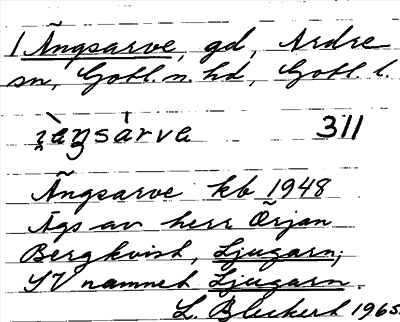 1 Ängsarve, gd, Ardre
sn, Gotl. n. hd, Gotl. l.
i̯ằŋsàrva 311
Ängsarve kb 1948
Ägs av herr Örjan
Bergkvist, Ljugarn;
TV namnet Ljugarn.
L. Bleckert 1965.